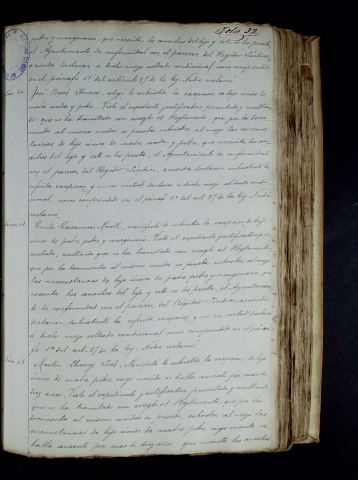 Folio 32
pobre y sexagenario, que necesita los auxilios del hijo y este se los presta,
el Ayuntamiento de conformidad con el parecer del Regidor Síndico,
acuerda declarar á dicho mozo soldado condicional como comprendido
en el párrafo 1º del artículo 87 de la ley. Nadie reclamó
José alegó le subsistía la excepción de hijo único de
viuda pobre. Visto el expediente justificativo presentado y resultando
que se ha tramitado con arreglo al Reglamento, que por los docu-
mentos al mismo unidos se prueba subsistir al mozo las circuns-
tancias de hijo único de madre viuda y pobre, que necesita los au-
xilios del hijo y este se los presta, el Ayuntamiento de conformidad
con el parecer del Regidor Síndico, acuerda declarar subsistente la
referida excepción y en su virtud declara á dicho mozo soldado condi-
cional como comprendido en el párrafo 2º del art. 87 de la ley. Nadie
reclamó
manifestó le subsistía la excepción de hijo
único de padre pobre y sexagenario. Visto el expediente justificativo pre-
sentado, resultando que se ha tramitado con arreglo al Reglamento,
que por los documentos al mismo unidos se prueba subsistir al mozo
las circunstancias de hijo único de padre pobre y sexagenario, que
necesita los auxilios del hijo y este se los presta, el Ayuntamien-
to de conformidad con el parecer del Regidor Síndico, acuerda
declarar subsistente la referida excepción y en su virtud declara
á dicho mozo soldado condicional como comprendido en el párra-
fo 1º del art. 87 de la ley. Nadie reclamó
Martín Vidal, Manifestó le subsistía la excepción de hijo
único de madre pobre cuyo marido se halla ausente por mas de
diez años. Visto el expediente justificativo presentado y resultando
que se ha tramitado con arreglo al Reglamento, que por los
documentos al mismo unidos se prueba subsistir al mozo las
circunstancias de hijo único de madre pobre cuyo marido se
halla ausente por mas de diez años, que necesita los auxilios